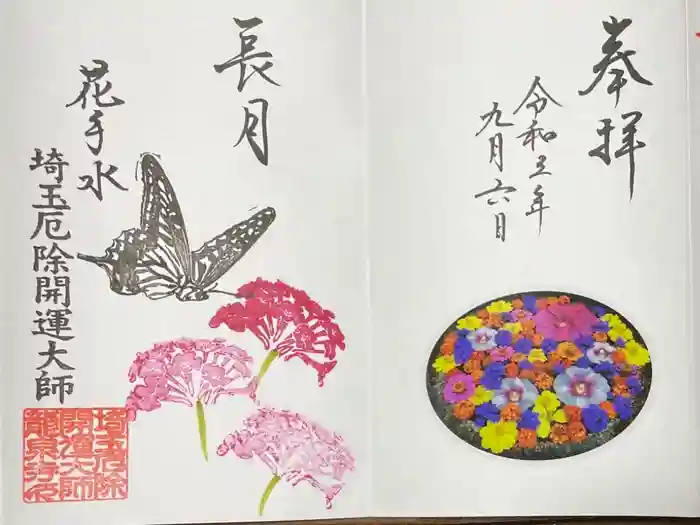 奉拝
令和五年
九月六日
長月
花手水
埼玉厄除開運大師
埼玉厄除
開運大師
龍泉寺印